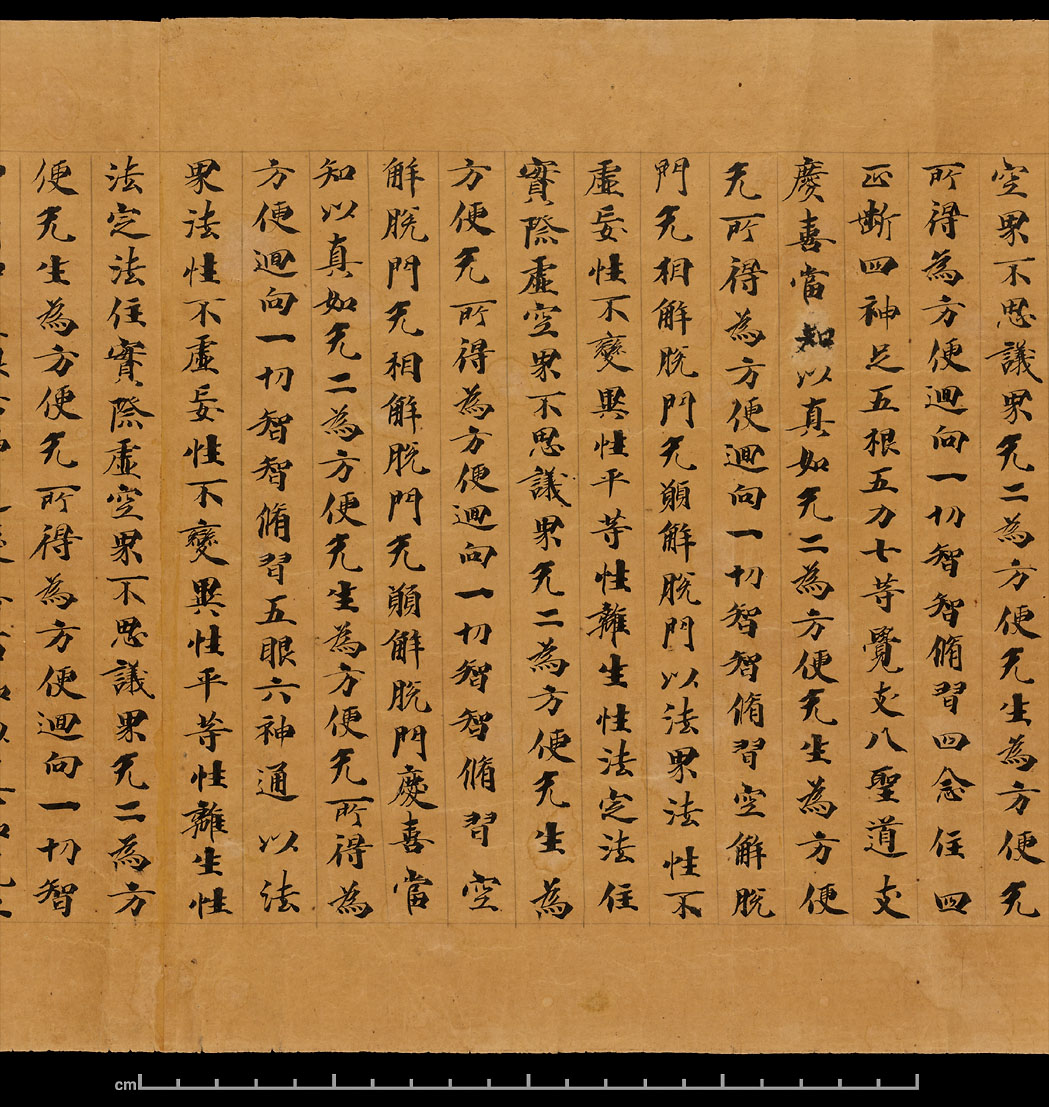 空界不思議界无二為方便无生為方便无
所得為方便迴向一切智智脩習四念住四
正斷四神足五根五力七等覺支八聖道支
慶喜當知以真如无二為方便无生為方便
无所得為方便迴向一切智智脩習空解脫
門无相解脫門无願解脫門以法界法性不
虛妄性不變異性平等性離生性法定法住
實際虛空界不思議界无二為方便无生為
方便无所得為方便迴向一切智智脩習空
解脫門无相解脫門无願解脫門慶喜當
知以真如无二為方便无生為方便无所得為
方便迴向一切智智脩習五眼六神通以法
界法性不虛妄性不變異性平等性離生性
法定法住實際虛空界不思議界无二為方
便无生為方便无所得為方便迴向一切智
cm